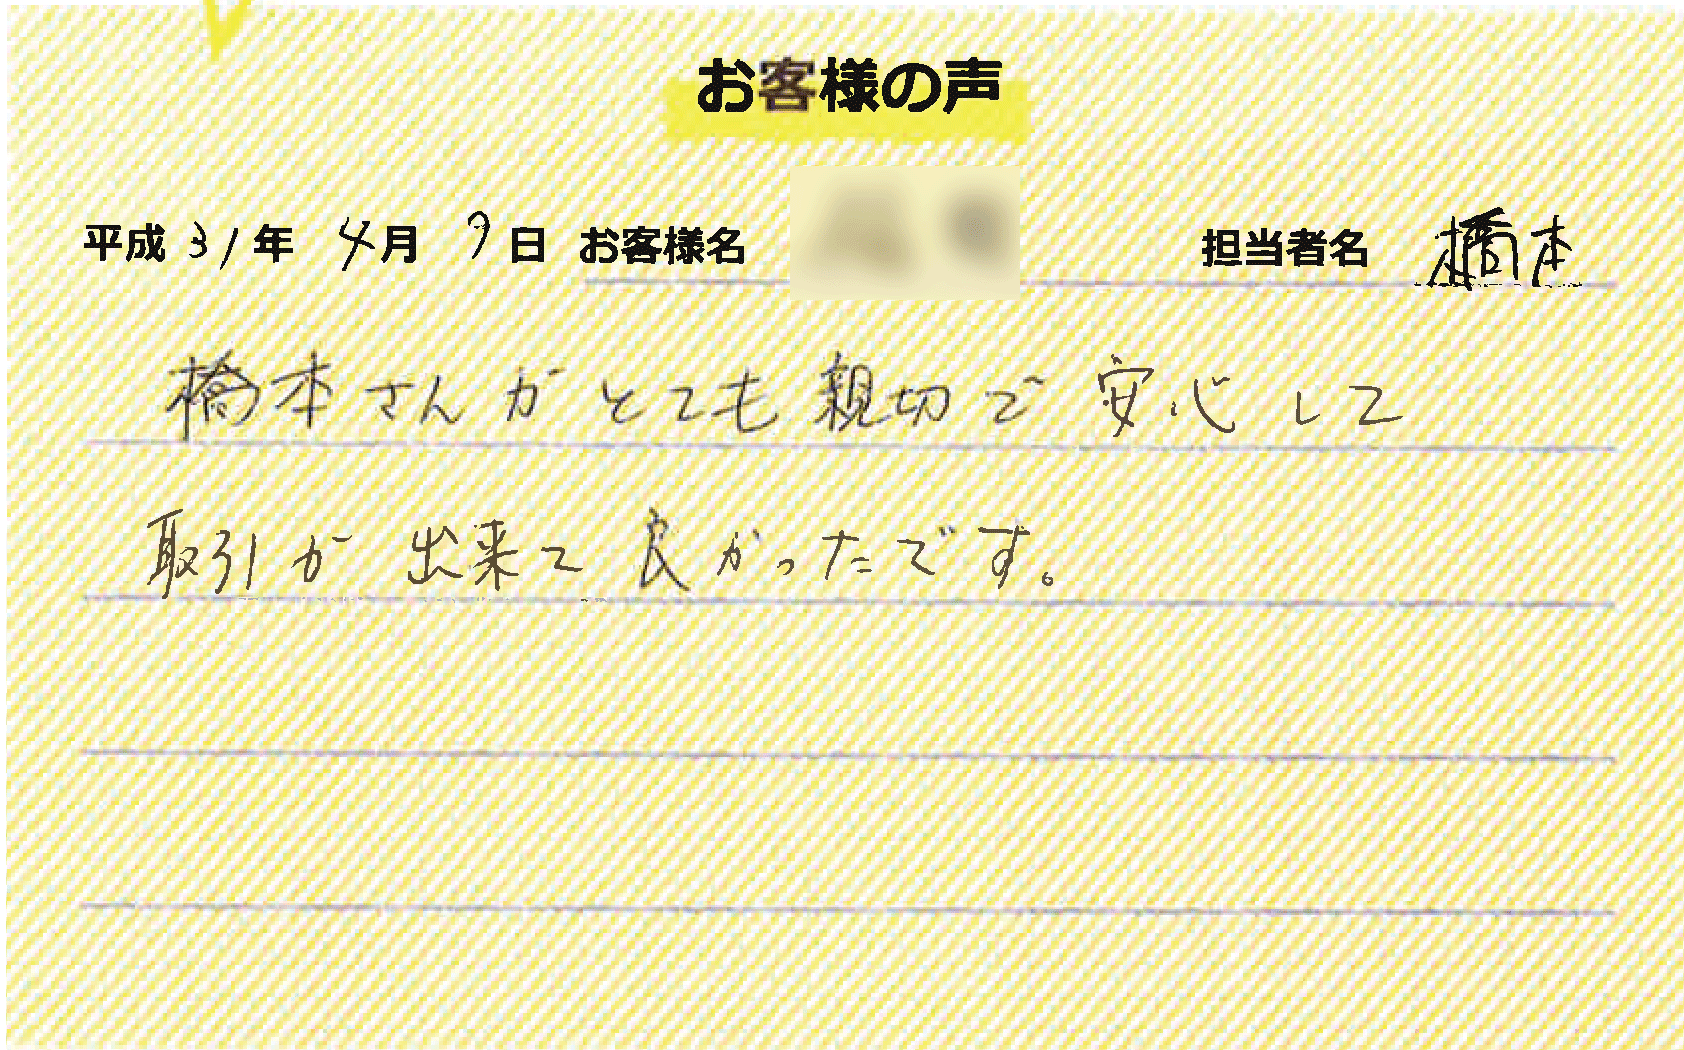 お客様の声
平成31年 4月 9日 お客様名 担当者名 橋本
橋本さんがとても親切で安心して
取引が出来て良かったです。